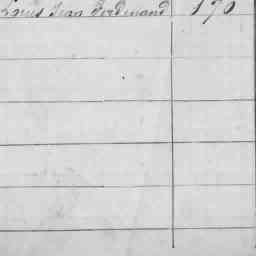 Louis Jean Ferdinand 170